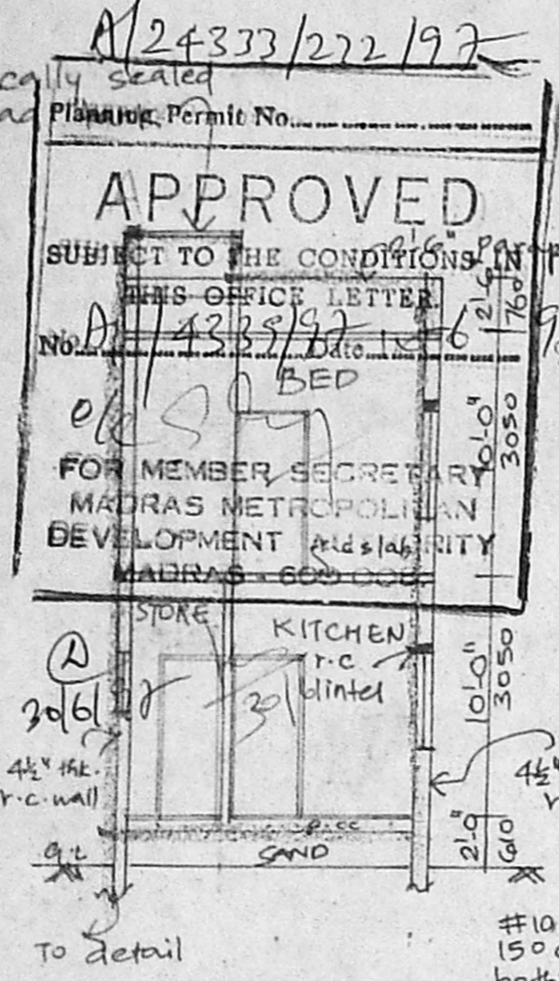 A/24333/222/97
cally sealed
Planning Permit No.
APPROVED
SUBJECT TO THE CONDITIONS IN
THIS OFFICE LETTER.
No. Date
2'-6"
760
BED
10'-0"
3050
FOR MEMBER SECRETARY
MADRAS METROPOLITAN
DEVELOPMENT
slab
MADRAS - 600 008
STORE
KITCHEN
r.c
lintel
10'-0"
3050
30/6/97
4½" thk.
r.c. wall
4½"
r
p.c.c
SAND
2'-0"
610
To detail
#10
150
both